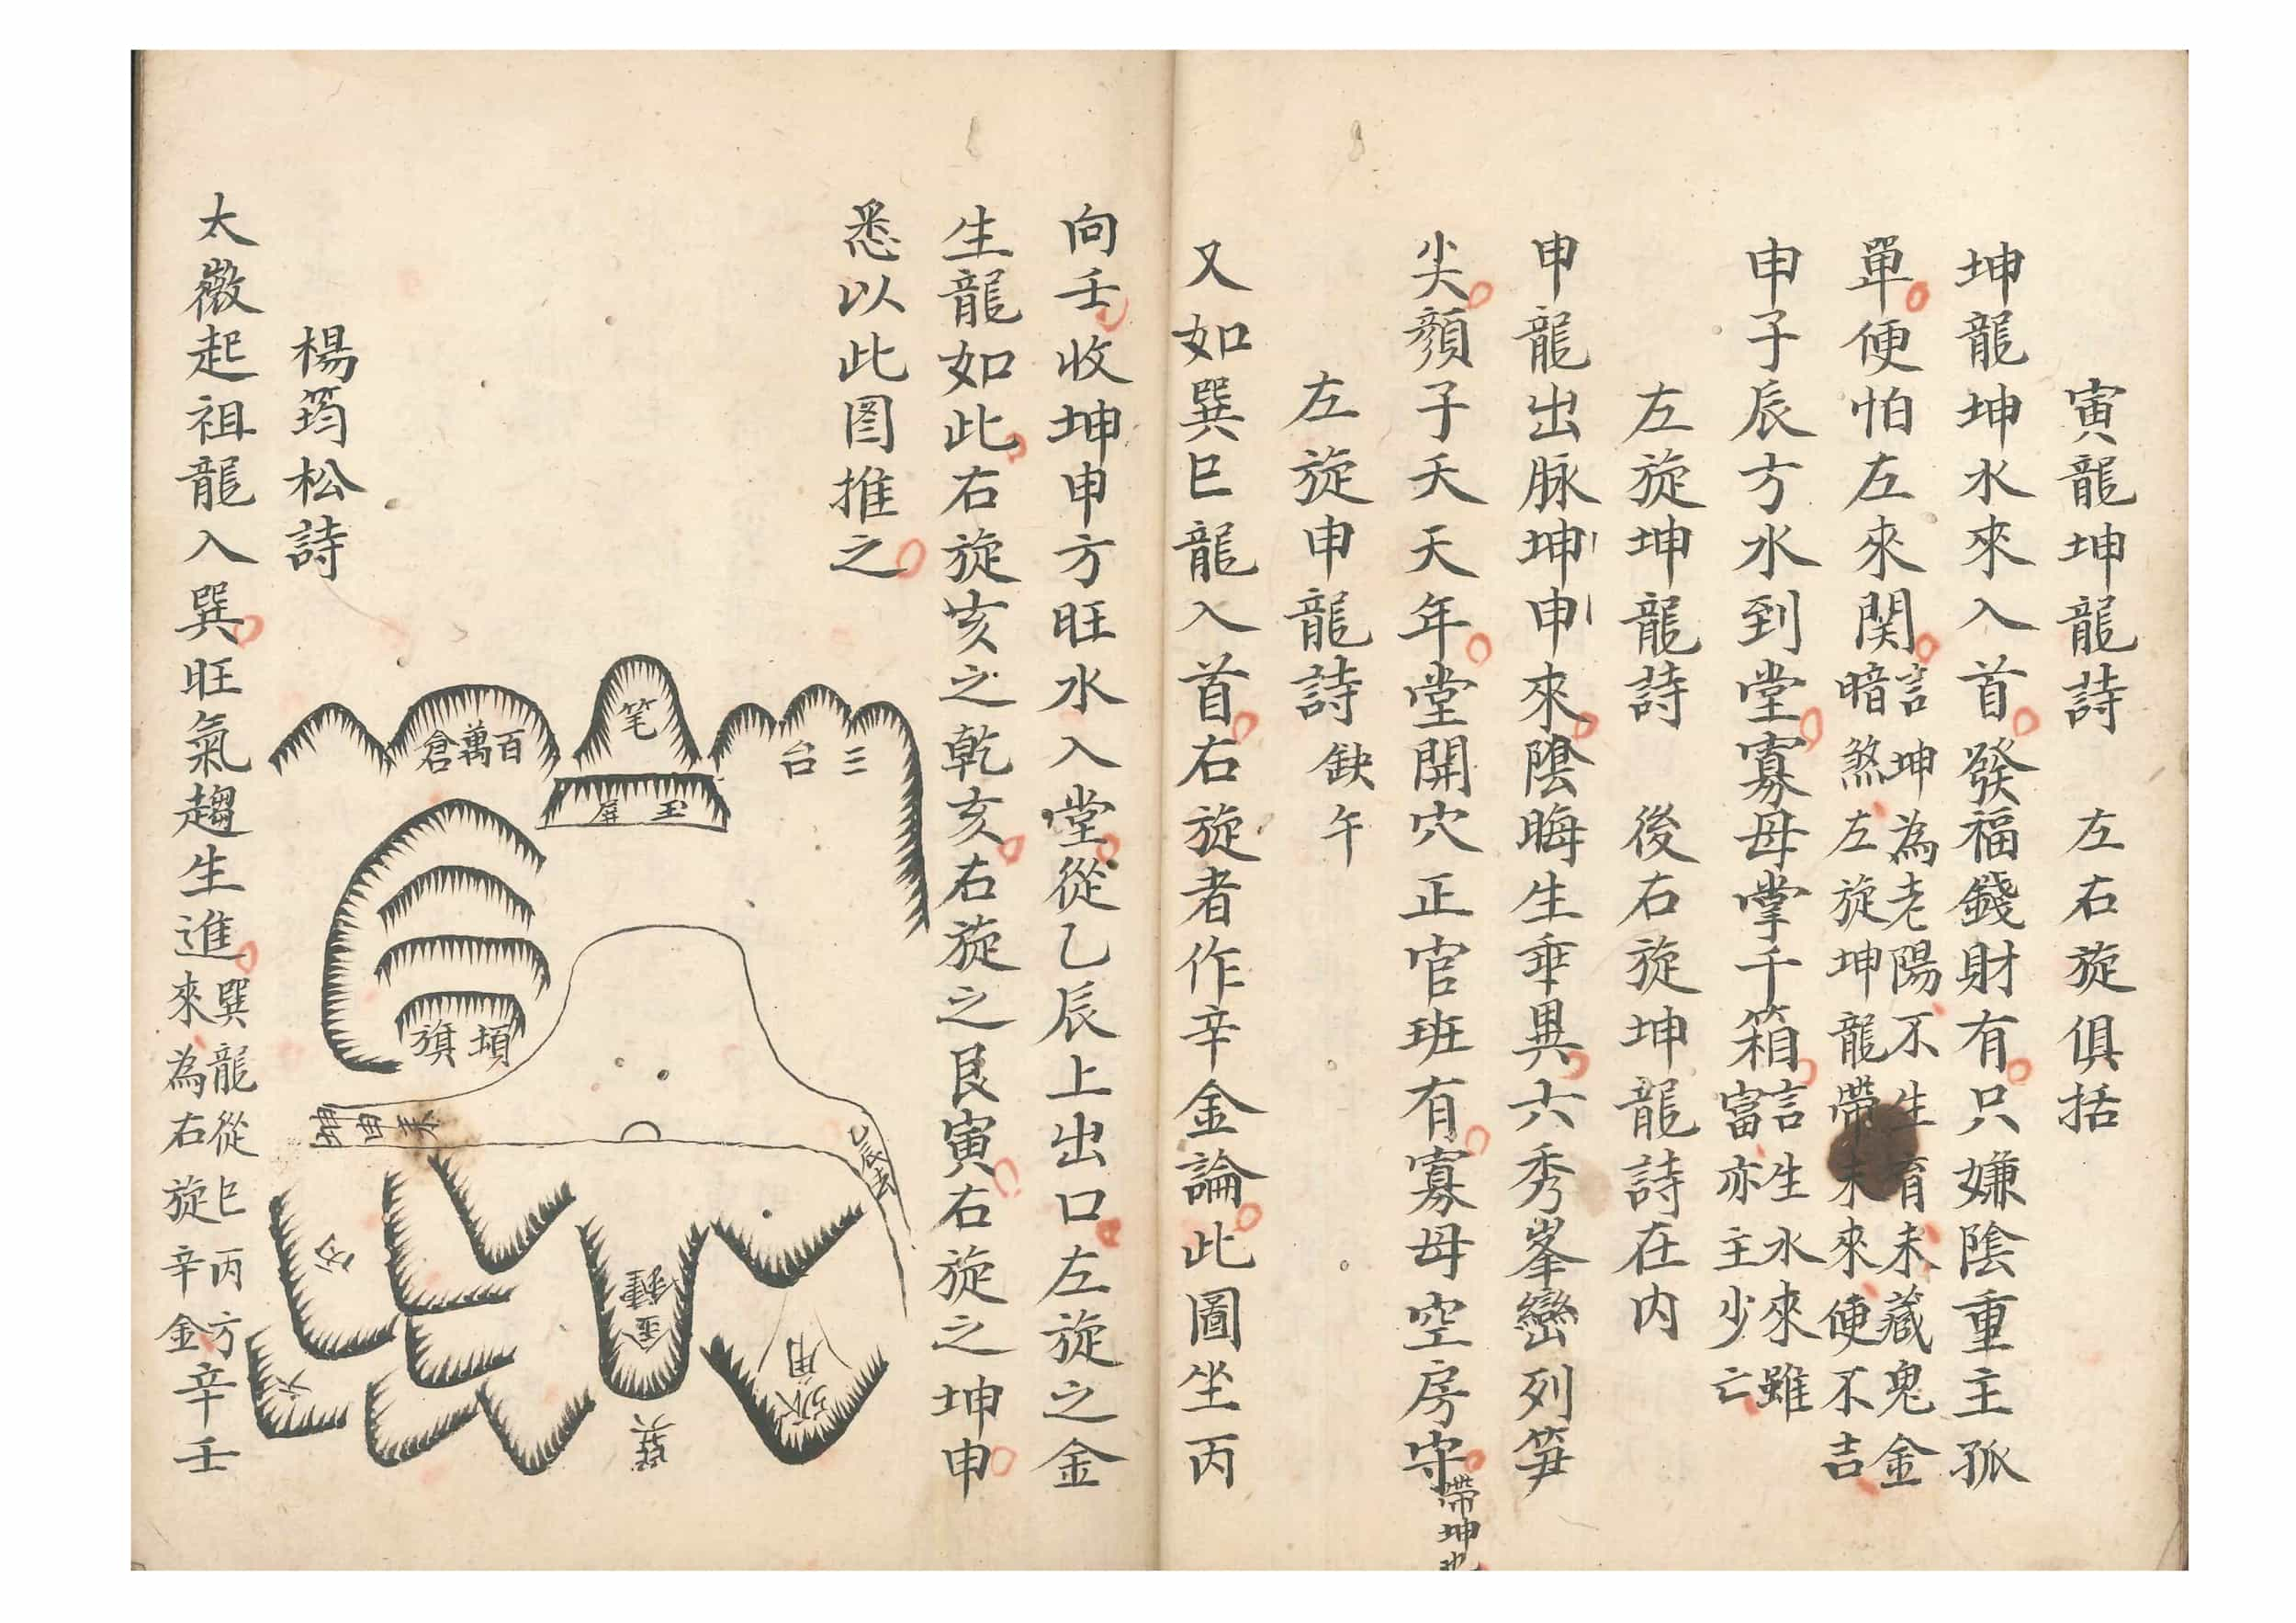 寅龍坤龍詩　左右旋俱括
坤龍坤水來入首發福錢財有只嫌陰重主孤
單便怕左來関言坤為老陽不生育未藏鬼金
暗煞左旋坤龍帶未來便不吉
申子辰方水到堂寡母掌千箱言生水來雖
富亦主少亡
左旋坤龍詩　後右旋坤龍詩在内
申龍出脉坤申來陰晦生乖異六秀峯巒列笋
尖顏子夭天年堂開穴正官班有寡母空房守帶坤也
左旋申龍詩　缺午
又如巽巳龍入首右旋者作辛金論此圖坐丙
向壬收坤申方旺水入堂從乙辰上出口左旋之金
生龍如此右旋亥之乾亥右旋之艮寅右旋之坤申
悉以此图推之
三台
笔
玉屏
百萬倉
頓旗
乙辰去
金鐘
巽
丙
六
楊筠松詩
太微起祖龍入巽旺氣趨生進巽龍從巳丙方
來為右旋辛金
辛壬